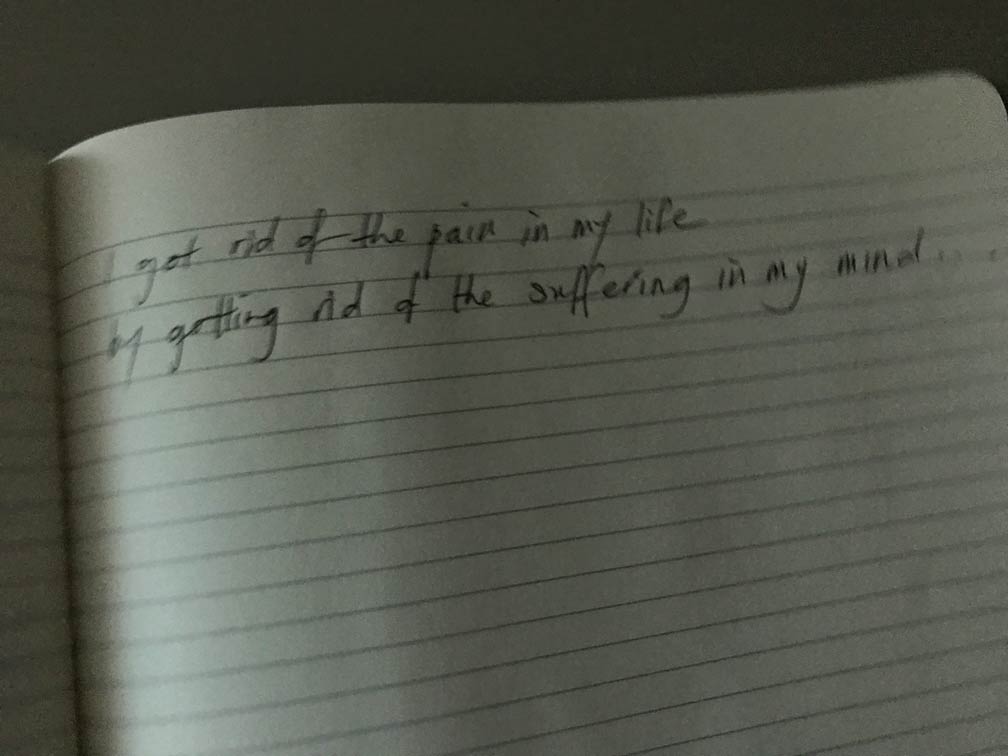 I got rid of the pain in my life
by getting rid of the suffering in my mind...